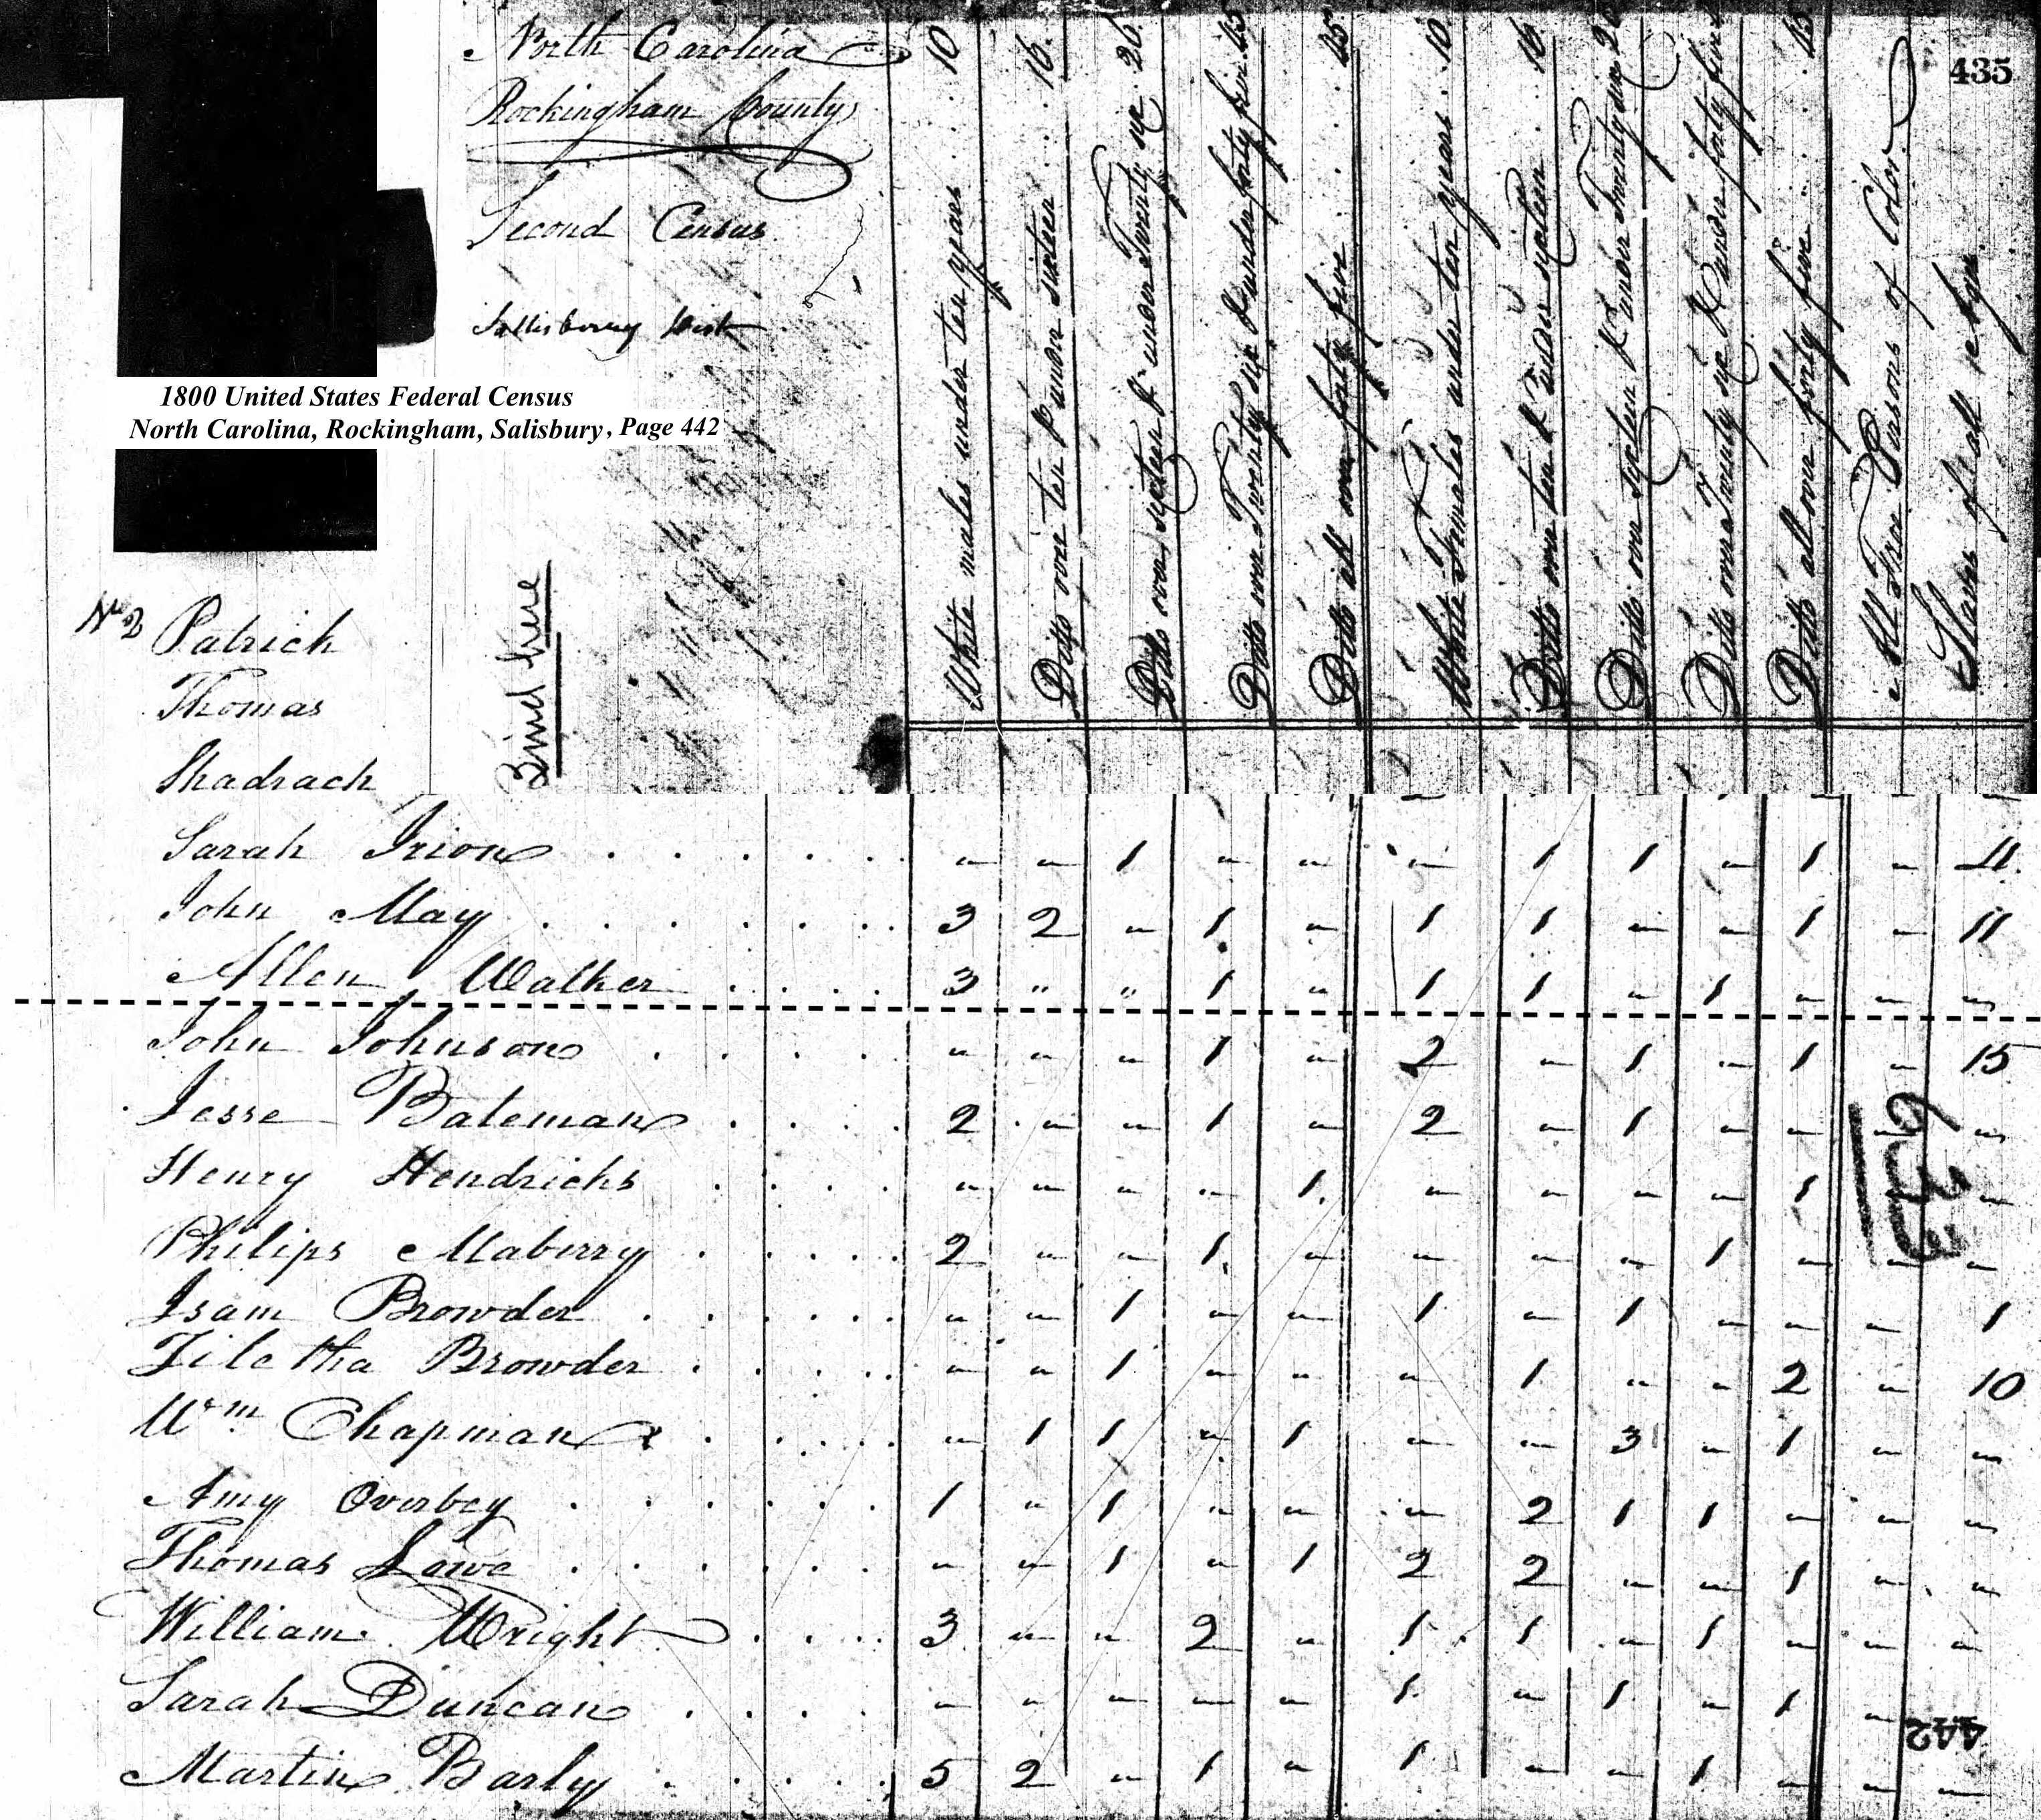 North Carolina
Rockingham County
Second Census
Sallisberry Dist
435
White males under ten years . . . 10
Ditto over ten & under sixteen . . . 16
Ditto over sixteen & under Twenty six 26
Ditto over Twenty six & under forty five 45
Ditto all over forty five . . . . 45
White Females under ten years . . 10
Ditto over ten & under sixteen . . . 16
Ditto over sixteen & under Twenty six 26
Ditto over Twenty six & under forty five
Ditto all over forty five . . . . 45
All Free Persons of Color
Slaves of all
1800 United States Federal Census
North Carolina, Rockingham, Salisbury, Page 442
Bind here
No 2 Patrick
Thomas
Shadrach
Sarah Irion . . . . . . " " 1 " " " 1 1 " 1 " 11
John May . . . . . . 3 2 " 1 " 1 1 " " 1 " 11
Allen Walker . . . . 3 " " 1 " 1 1 " 1 " " "
John Johnson . . . . " " " 1 " 2 " 1 " 1 " 15
Jesse Bateman . . . . 2 " " 1 " 2 " 1 " " " "
Henry Hendricks . . . . " " " " 1 " " " " 1 " "
Philips Maberry . . . . . 2 " " 1 " " " " 1 " " "
Isam Browder . . . . . " " 1 " " 1 " 1 " " " 1
Tiletha Browder . . . . " " 1 " " " 1 " " 2 " 10
Wm Chapman . . . . . " 1 1 " 1 " " 3 " 1 " "
Amy Overbey . . . . . . 1 " 1 " " " 2 1 1 " " "
Thomas Lowe . . . . . . " " 1 " 1 2 2 " " 1 " "
William Wright . . . . 3 " " 2 " 1 1 " 1 " " "
Sarah Duncan . . . . " " " " " 1 " 1 " 1 "
Martin Barly . . . . . 5 2 " 1 " 1 " " 1 " " "
442